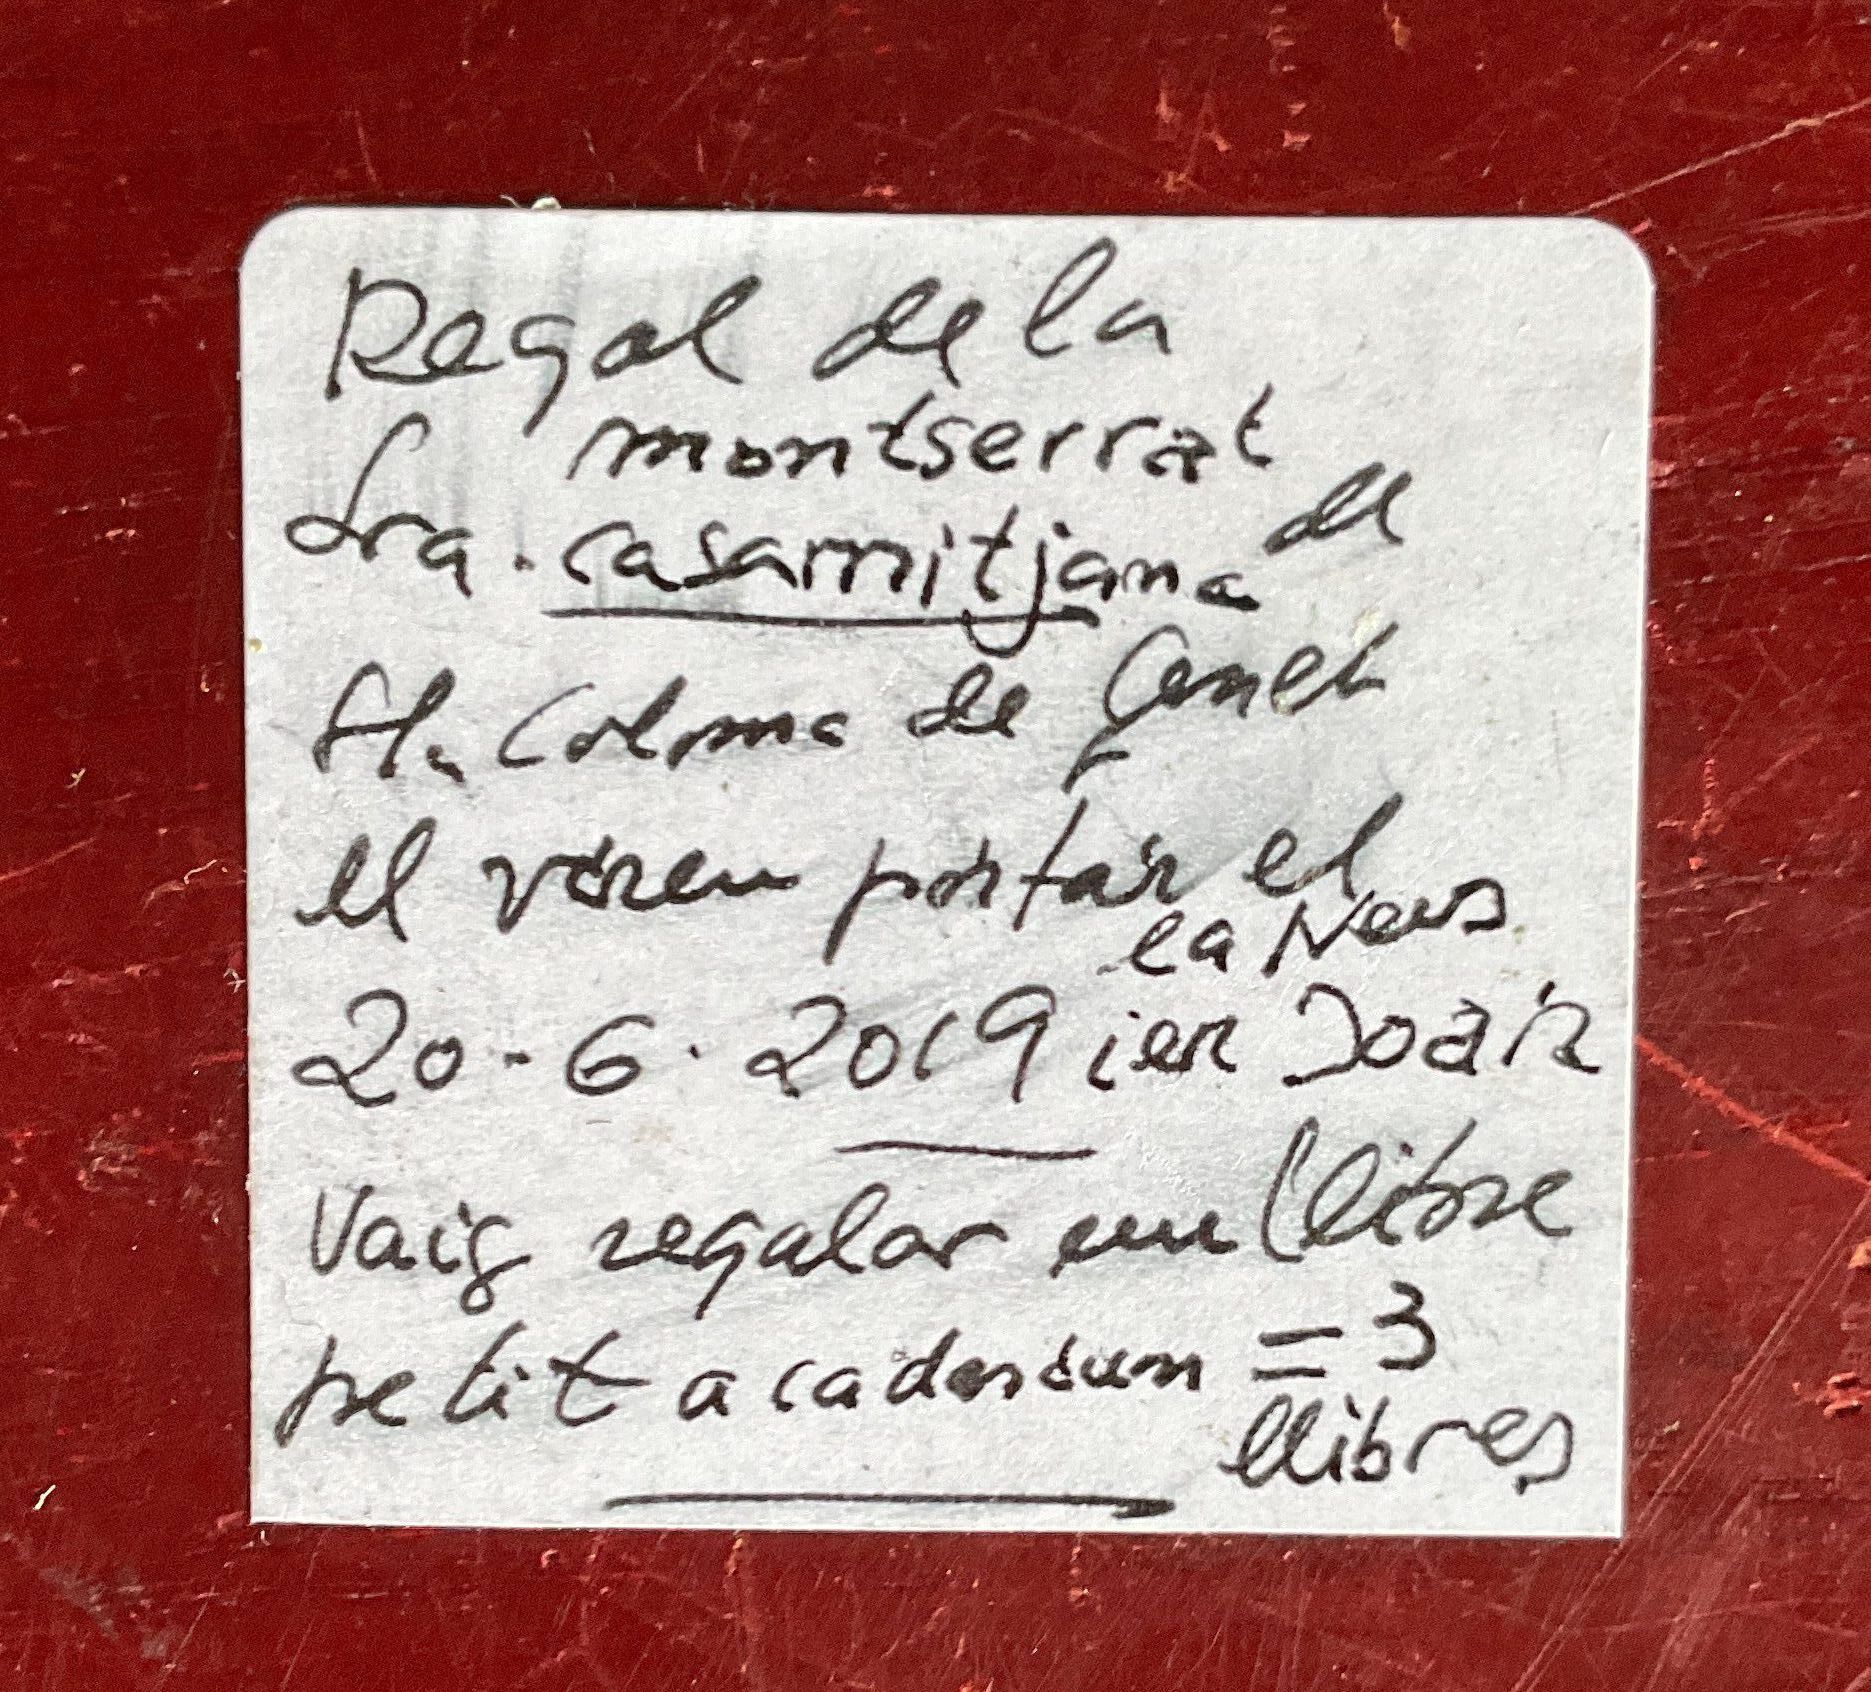 Regal de la
montserrat
Sra. casamitjana de
Sta Coloma de
el varen portar el
la Neus
20-6-2019 i en Joan
Vaig regalar un llibre
petit a cadascun = 3
llibres